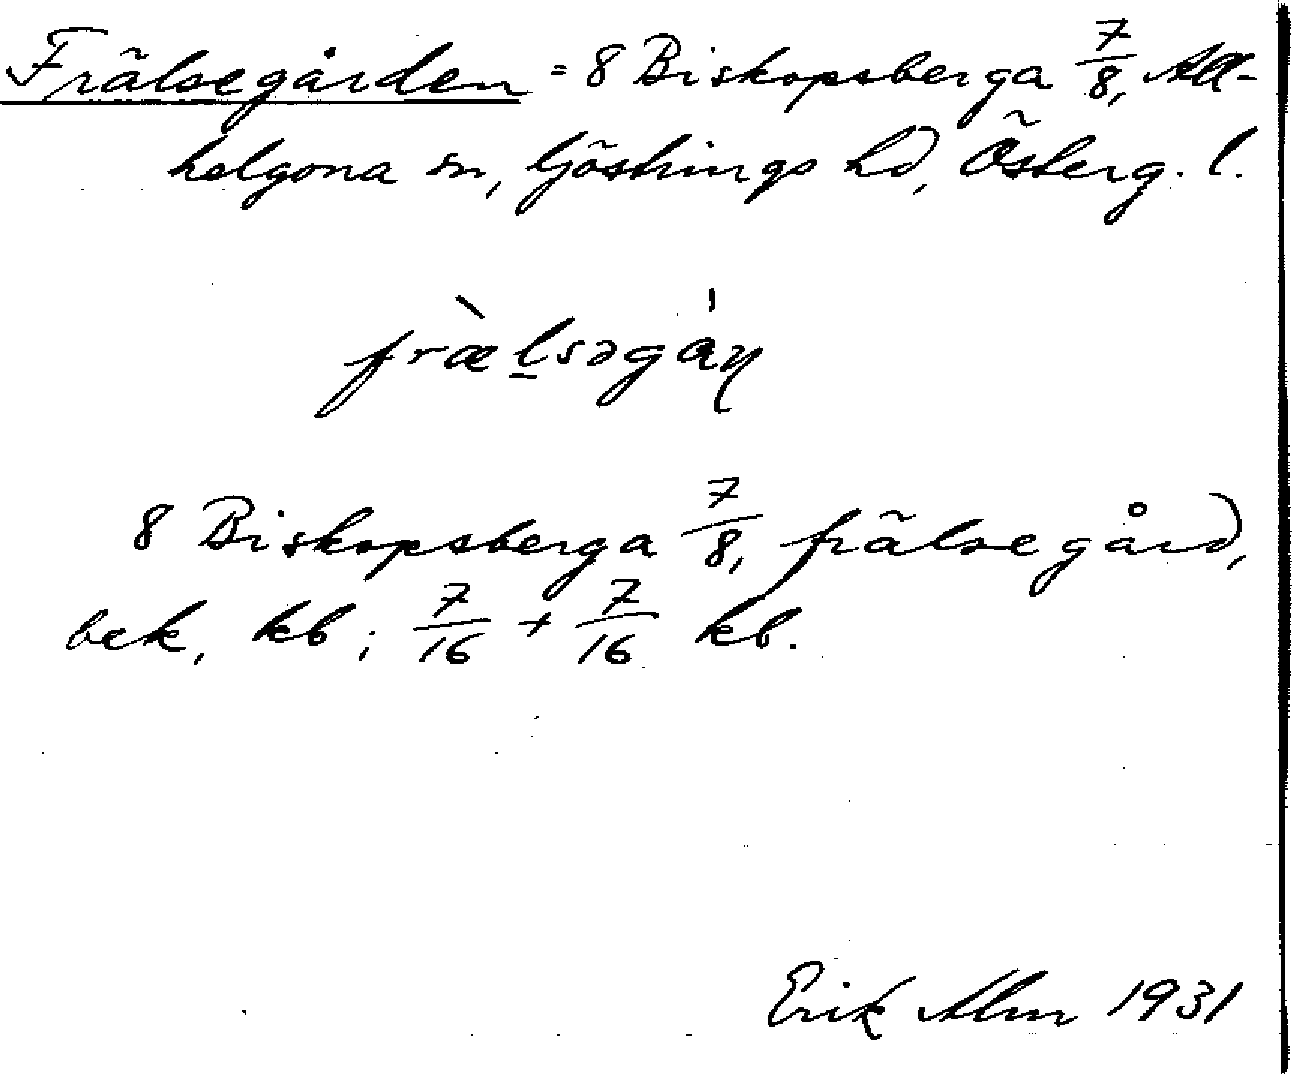 Frälsegården = 8 Biskopsberga 7/8, All-
helgona sn, Göstrings hd, Österg. l.
fræ̀lsəgáɳ
8 Biskopsberga 7/8, frälsegård,
bek, kb; 7/16 + 7/16 kb.
Erik Alm 1931